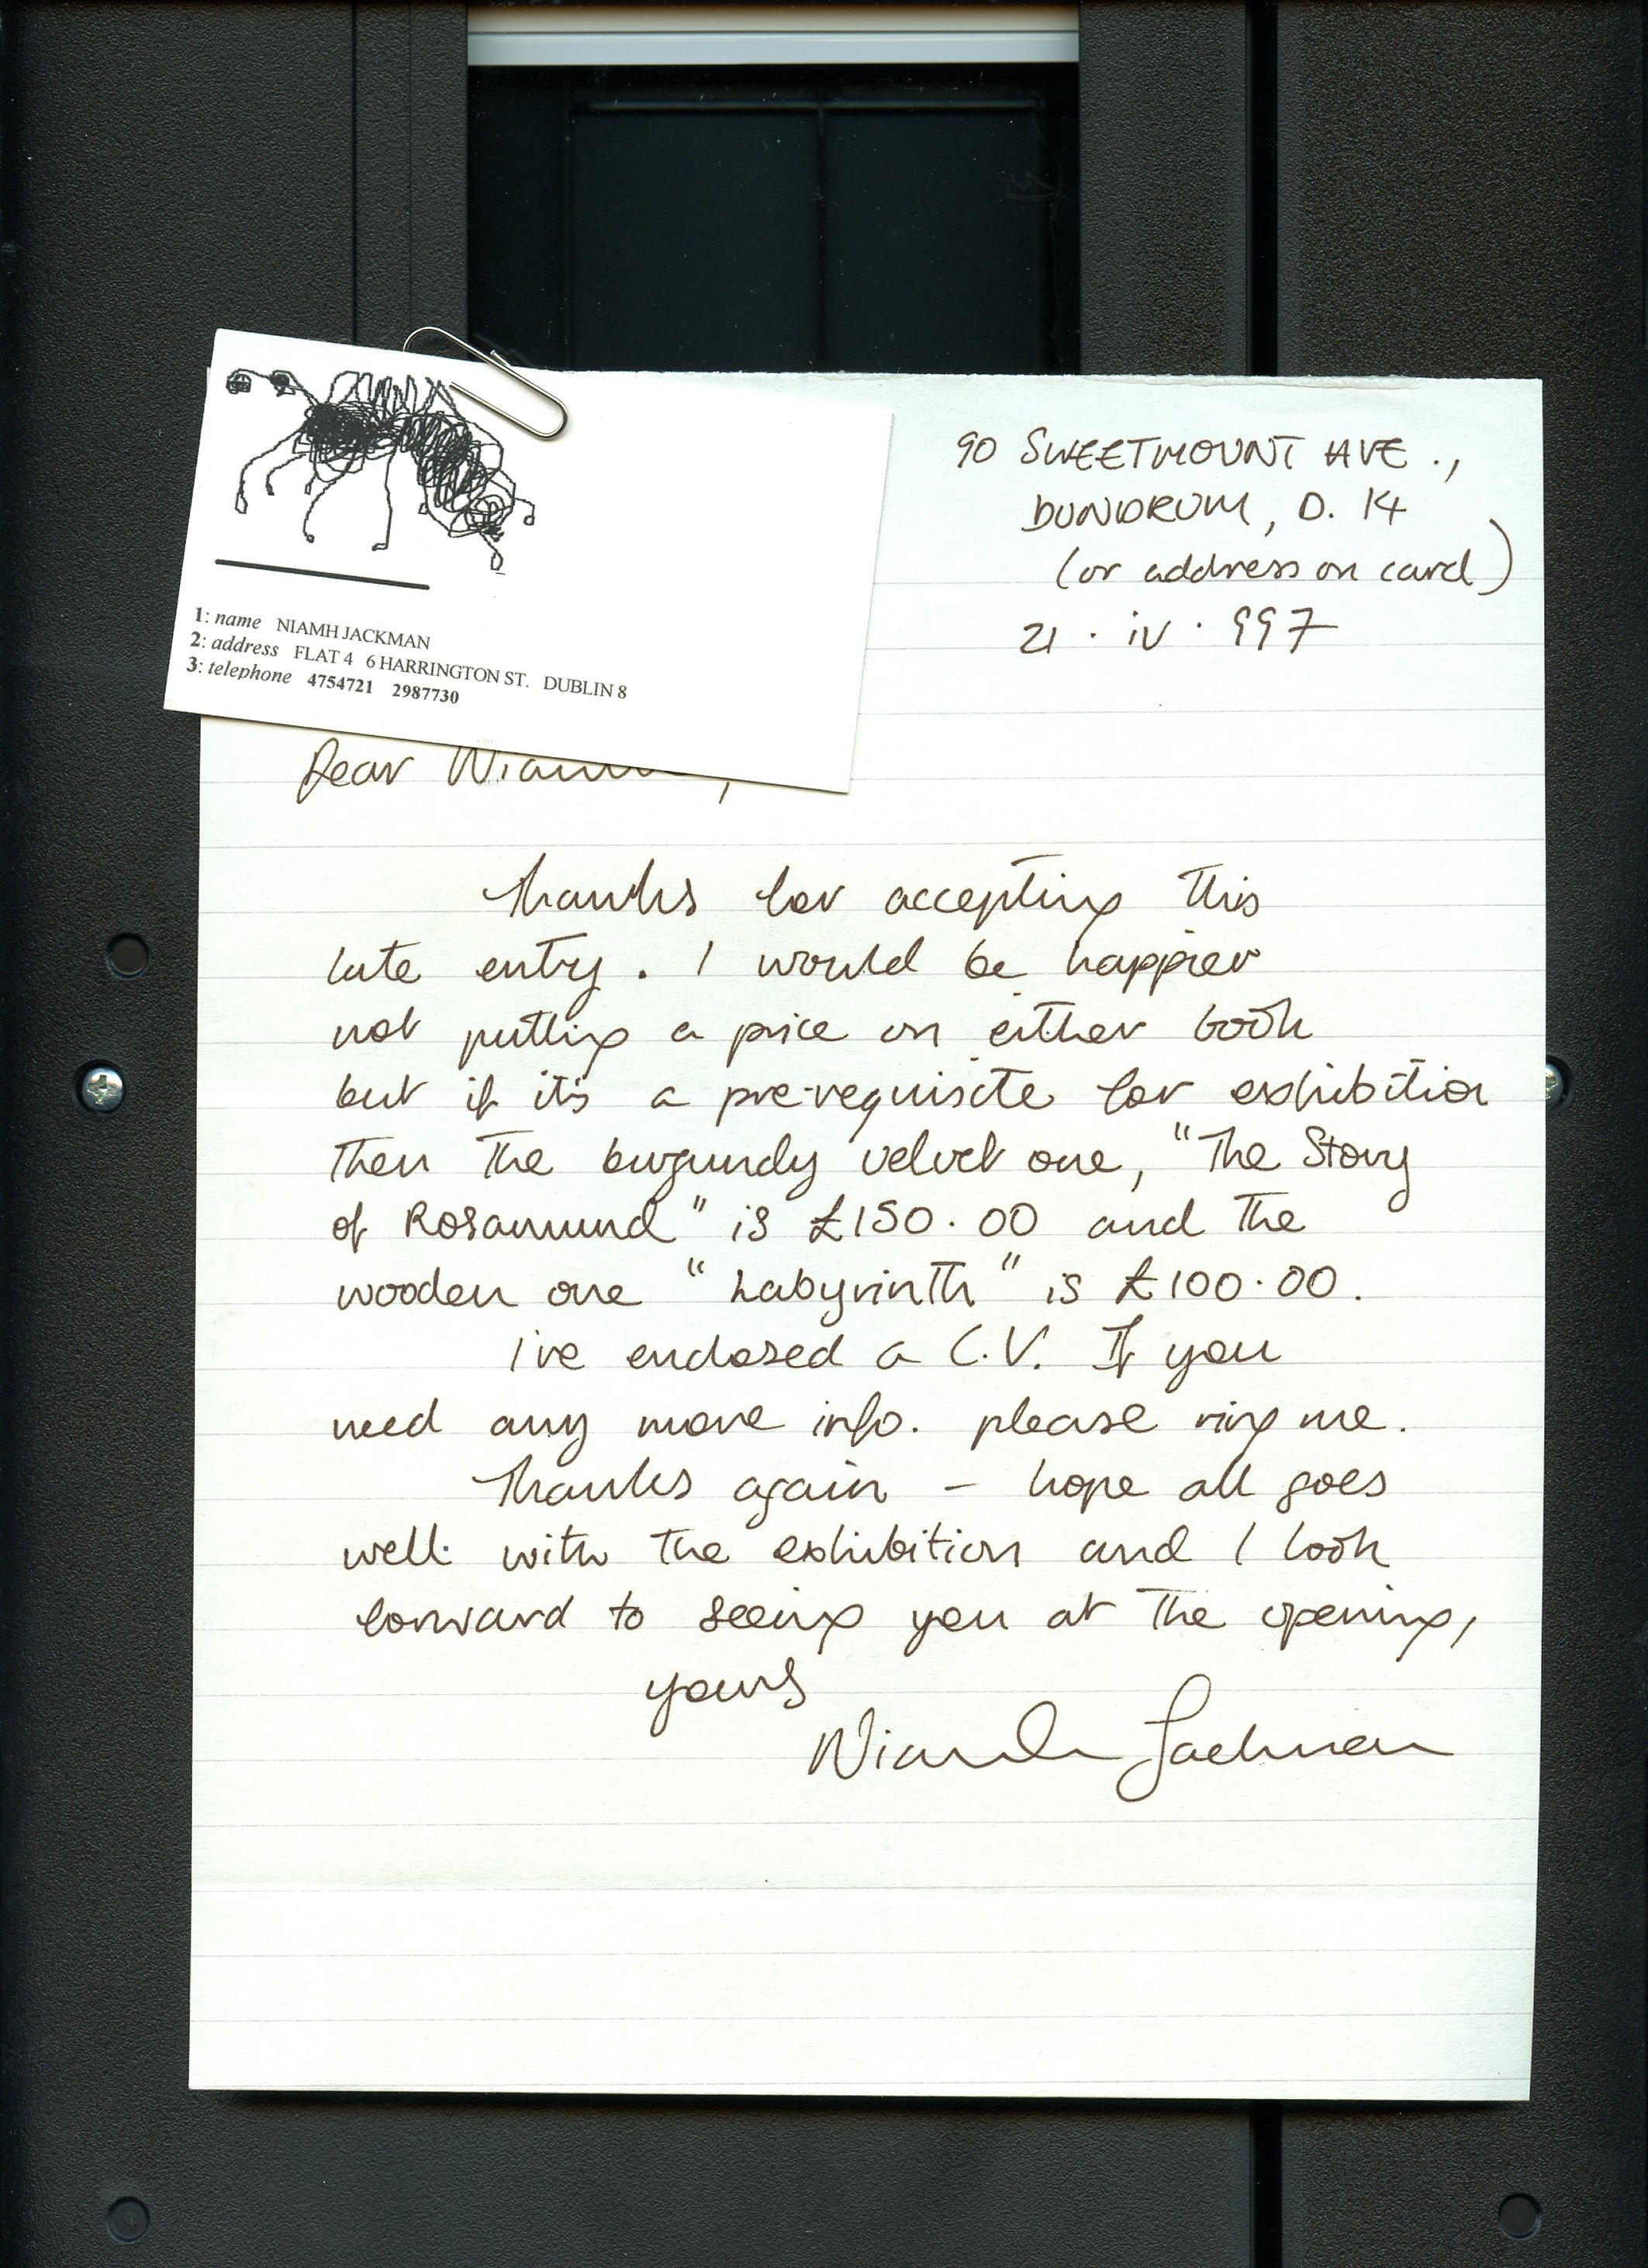 1: name NIAMH JACKMAN
2: address FLAT 4 6 HARRINGTON ST. DUBLIN 8
3: telephone 4754721 2987730
90 SWEETMOUNT AVE.,
DUNDRUM, D. 14
(or address on card)
21 · iv · 997
Dear
Thanks for accepting this
late entry. I would be happier
not putting a price on either book
but if it's a pre-requisite for exhibition
then the burgundy velvet one, "The Story
of Rosamund" is £150.00 and the
wooden one "Labyrinth" is £100.00.
I've enclosed a C.V. If you
need any more info. please ring me.
Thanks again – hope all goes
well with the exhibition and I look
forward to seeing you at the opening,
yours
Niamh Jackman